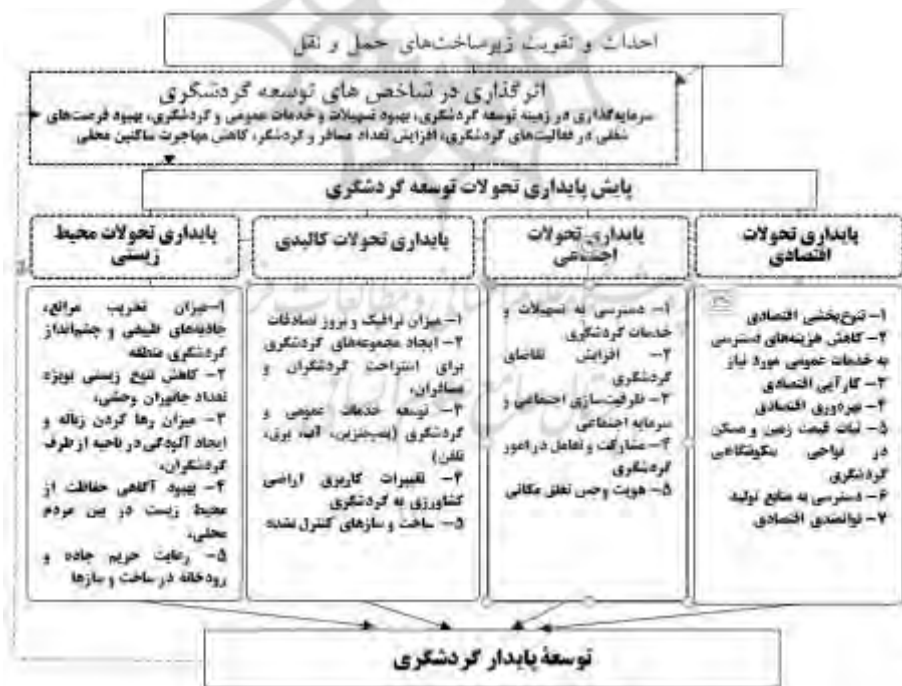 احداث و تقویت زیرساخت‌های حمل و نقل
اثرگذاری در شاخص های توسعه گردشگری
سرمایه‌گذاری در زمینه توسعه گردشگری، بهبود تسهیلات و خدمات عمومی و گردشگری، بهبود فرصت‌های
شغلی در فعالیت‌های گردشگری، افزایش تعداد مسافر و گردشگر، کاهش مهاجرت ساکنین محلی
پایش پایداری تحولات توسعه گردشگری
پایداری تحولات
اقتصادی
۱- تنوع‌بخشی اقتصادی
۲- کاهش هزینه‌های دسترسی
به خدمات عمومی مورد نیاز
۳- کارآیی اقتصادی
۴- بهره‌وری اقتصادی
۵- ثبات قیمت زمین و مسکن
در نواحی سکونتگاهی
گردشگری
۶- دسترسی به منابع تولید
۷- توانمندی اقتصادی
پایداری تحولات
اجتماعی
۱- دسترسی به تسهیلات و
خدمات گردشگری
۲- افزایش تقاضای
گردشگری
۳- ظرفیت‌سازی اجتماعی و
سرمایه اجتماعی
۴- مشارکت و تعامل در امور
گردشگری
۵- هویت وحس تعلق مکانی
پایداری تحولات کالبدی
۱- میزان ترافیک و بروز تصادفات
۲- ایجاد مجموعه‌های گردشگری
برای استراحت گردشگران و
مسافران،
۳- توسعه خدمات عمومی و
گردشگری (پمپ‌بنزین، آب، برق،
تلفن)
۴- تغییرات کاربری اراضی
کشاورزی به گردشگری
۵- ساخت و سازهای کنترل نشده
پایداری تحولات محیط
زیستی
۱-میزان تخریب مراتع،
جاذبه‌های طبیعی و چشم‌انداز
گردشگری منطقه
۲- کاهش تنوع زیستی بویژه
تعداد جانوران وحشی،
۳- میزان رها کردن زباله و
ایجاد آلودگی در ناحیه از طرف
گردشگران،
۴- بهبود آگاهی حفاظت از
محیط زیست در بین مردم
محلی،
۵- رعایت حریم جاده و
رودخانه در ساخت و سازها
توسعهٔ پایدار گردشگری